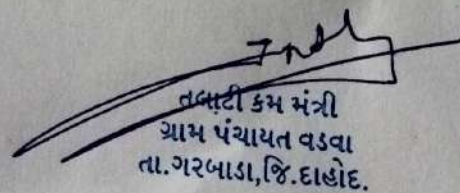 તલાટી કમ મંત્રી
ગ્રામ પંચાયત વડવા
તા.ગરબાડા,જિ.દાહોદ.